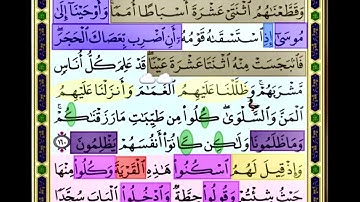 وَقَطَّعْنَٰهُمُ ٱثْنَتَىْ عَشْرَةَ أَسْبَاطًا أُمَمًا ۚ وَأَوْحَيْنَآ إِلَىٰ
مُوسَىٰٓ إِذِ ٱسْتَسْقَىٰهُ قَوْمُهُۥٓ أَنِ ٱضْرِب بِّعَصَاكَ ٱلْحَجَرَ ۖ
فَٱنۢبَجَسَتْ مِنْهُ ٱثْنَتَا عَشْرَةَ عَيْنًا ۖ قَدْ عَلِمَ كُلُّ أُنَاسٍ
مَّشْرَبَهُمْ ۚ وَظَلَّلْنَا عَلَيْهِمُ ٱلْغَمَٰمَ وَأَنزَلْنَا عَلَيْهِمُ
ٱلْمَنَّ وَٱلسَّلْوَىٰ ۖ كُلُوا۟ مِن طَيِّبَٰتِ مَا رَزَقْنَٰكُمْ ۚ
وَمَا ظَلَمُونَا وَلَٰكِن كَانُوٓا۟ أَنفُسَهُمْ يَظْلِمُونَ ١٦٠
وَإِذْ قِيلَ لَهُمُ ٱسْكُنُوا۟ هَٰذِهِ ٱلْقَرْيَةَ وَكُلُوا۟ مِنْهَا
حَيْثُ شِئْتُمْ وَقُولُوا۟ حِطَّةٌ وَٱدْخُلُوا۟ ٱلْبَابَ سُجَّدًا